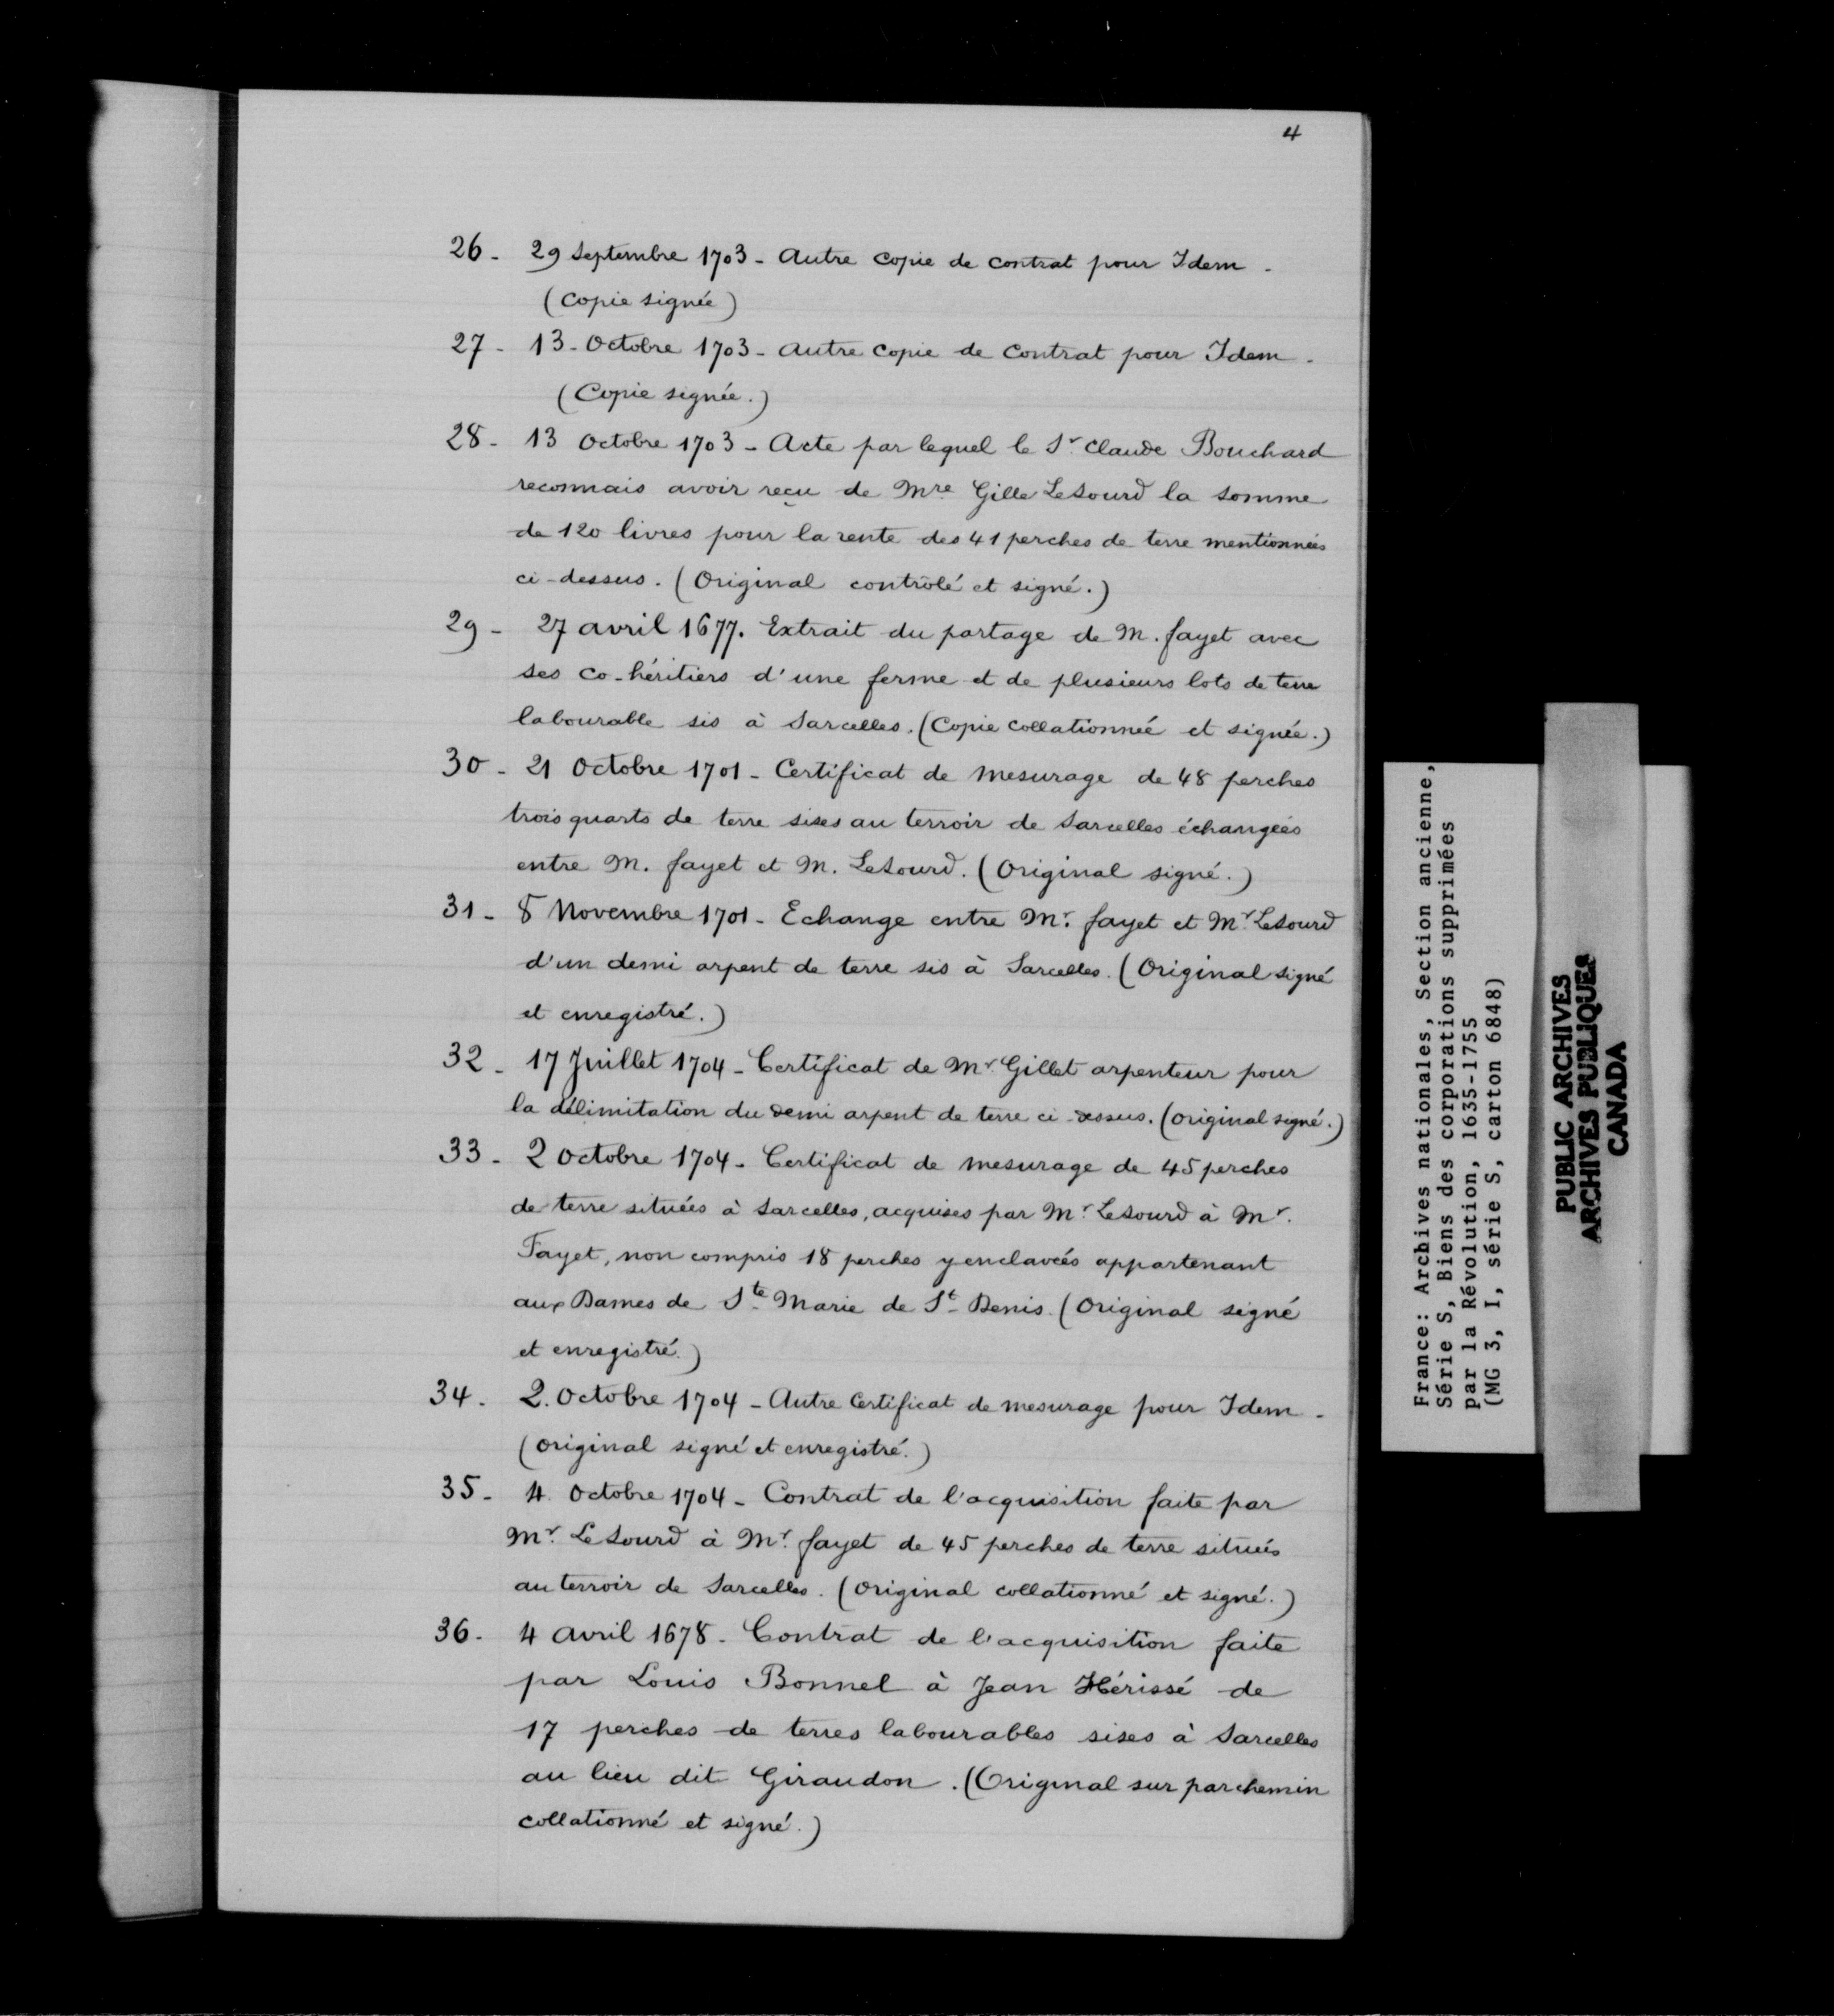 4
26 - 29 Septembre 1703 - Autre copie de contrat pour Idem -
(Copie signée)
27 - 13 - Octobre 1703 - Autre copie de Contrat pour Idem -
(Copie signée.)
28 - 13 Octobre 1703 - Acte par lequel le Sr. Claude Bouchard
reconnais avoir reçu de Mre Gille LeSourd la somme
de 120 livres pour la rente des 41 perches de terre mentionnées
ci-dessus. (Original contrôlé et signé.)
29 - 27 avril 1677. Extrait du partage de M. fayet avec
ses co-héritiers d'une ferme et de plusieurs lots de terre
labourable sis à Sarcelles. (Copie collationnée et signée.)
30 - 21 Octobre 1701 - Certificat de mesurage de 48 perches
trois quarts de terre sises au terroir de Sarcelles échangées
entre M. fayet et M. LeSourd. (Original signé.)
31 - 8 Novembre 1701 - Echange entre Mr. fayet et Mr. LeSourd
d'un demi arpent de terre sis à Sarcelles. (Original signé
et enregistré.)
32 - 17 Juillet 1704 - Certificat de Mr. Gillet arpenteur pour
la délimitation du demi arpent de terre ci-dessus. (original signé.)
33 - 2 Octobre 1704 - Certificat de mesurage de 45 perches
de terre situées à Sarcelles, acquises par Mr. LeSourd à Mr.
Fayet, non compris 18 perches y enclavées appartenant
aux Dames de Ste Marie de St Denis. (Original signé
et enregistré.)
34 - 2. Octobre 1704 - Autre Certificat de mesurage pour Idem -
(original signé et enregistré.)
35 - 4. Octobre 1704 - Contrat de l'acquisition faite par
Mr. LeSourd à Mr. fayet de 45 perches de terre situées
au terroir de Sarcelles. (Original collationné et signé.)
36 - 4 avril 1678 - Contrat de l'acquisition faite
par Louis Bonnel à Jean Hérissé de
17 perches de terres labourables sises à Sarcelles
au lieu dit Giraudon. (Original sur parchemin
collationné et signé.)
France: Archives nationales, Section ancienne,
Série S, Biens des corporations supprimées
par la Révolution, 1635-1755
(MG 3, I, série S, carton 6848)
PUBLIC ARCHIVES
ARCHIVES PUBLIQUES
CANADA